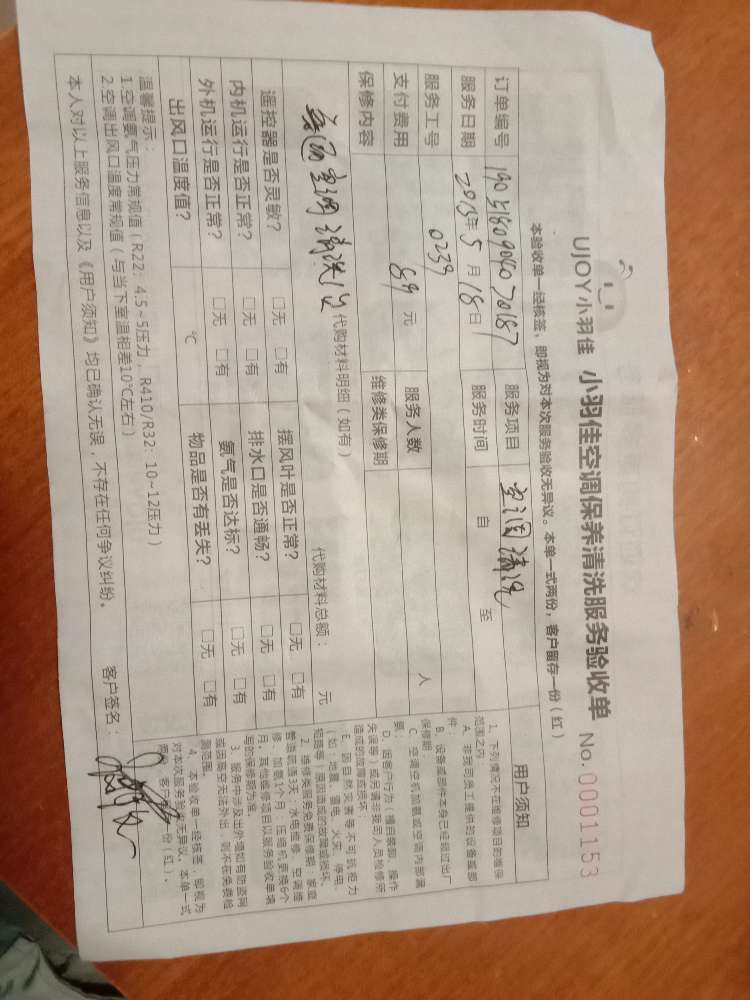 UJOY小羽佳 小羽佳空调保养清洗服务验收单 No.0001153
本验收单一经核签，即视为对本次服务验收无异议。本单一式两份，客户留存一份（红）
订单编号 1905180904070187 服务项目 空调清洗
服务日期 2019年5月18日 服务时间 自 至
服务工号 0239 服务人数 人
支付费用 89 元 维修类保修期
保修内容
代购材料明细（如有） 代购材料总额： 元
空调清洗
遥控器是否灵敏？ □无 □有 摆风叶是否正常？ □无 □有
内机运行是否正常？ □无 □有 排水口是否通畅？ □无 □有
外机运行是否正常？ □无 □有 氨气是否达标？ □无 □有
出风口温度值？ ℃ 物品是否有丢失？ □无 □有
温馨提示：
1.空调氨气压力常规值（R22：4.5~5压力，R410/R32：10-12压力）
2.空调出风口温度常规值（与当下室温相差10℃左右）
本人对以上服务信息以及《用户须知》均已确认无误，不存在任何争议纠纷。 客户签名：
用户须知
1、下列情况不在维修项目的维保
范围之内：
A、非我司员工提供的设备或部
件；
B、设备或部件本身已经超过出厂
保修期；
C、空调空机加氨或空调内部漏
氨；
D、因客户行为（擅自装卸、操作
失误等）或另请非我司人员检修所
造成的故障或损坏
E、因自然灾害等不可抗拒力
（如：地震、雷电、火灾、停电、
短路等）原因造成的故障或损坏。
2、维修类服务免费保修期：家庭
管道疏通3天，水电维修、空调维
修、加氨1个月；压缩机更换6个
月；其他维修项目以服务验收单填
写的保修期为准。
3、服务中涉及出外墙如有防盗网
或因高空无法外出，则不在免费检
测范围。
4、本验收单一经核签，即视为
对本次服务验收无异议。本单一式
两份，客户留存一份（红）。